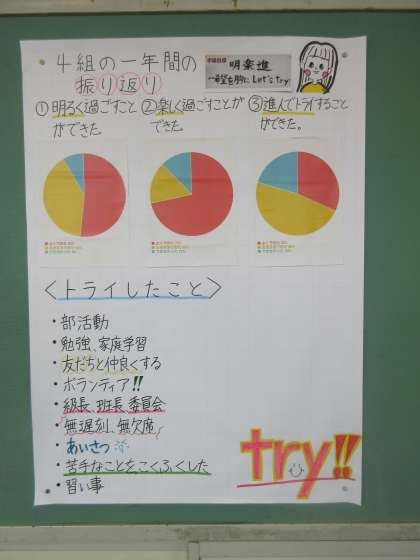 4組の一年間の
振り返り
学級目標
明楽進
〜希望を胸に Let's try〜
①明るく過ごすこと
ができた。
②楽しく過ごすことが
できた。
③進んでトライすること
ができた。
〈トライしたこと〉
・部活動
・勉強、家庭学習
・友だちと仲良くする
・ボランティア!!
・級長、班長、委員会
・無遅刻、無欠席
・あいさつ
・苦手なことをこくふくした
・習い事
try!!